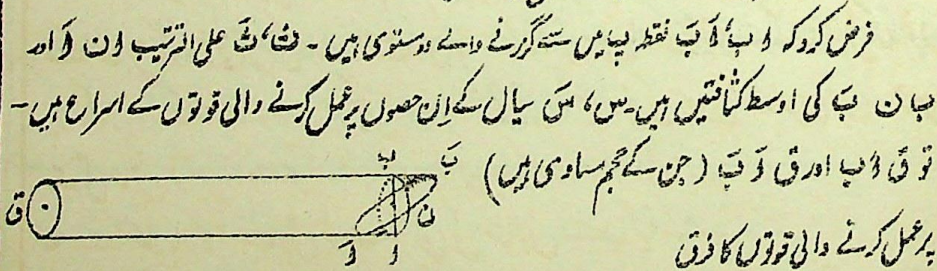 فرض کرو کہ ا ب، اَ بَ نقطہ ب میں سے گزرنے والے دو مستوی ہیں۔ ث، ثَ علی الترتیب ا ن اَ اور
ب ن بَ کی اوسط کثافتیں ہیں۔ س، سَ سیال کے اِن حصوں پر عمل کرنے والی قوتوں کے اسراع ہیں۔
تو ق ا ب اور ق اَ بَ (جن کے حجم مساوی ہیں)
پر عمل کرنے والی قوتوں کا فرق
ب بَ
ق ن
اَ ا